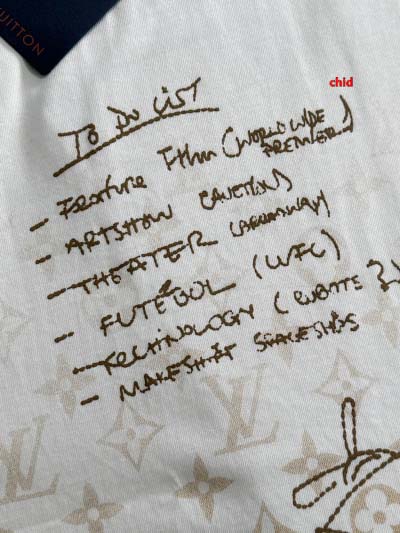 VUITTON
chid
To Do LIST
- Feature Film (WORLDWIDE PREMIER)
- ARTSHOW (AUCTION)
- THEATER (BROADWAY)
- FUTEBOL (WFC)
- TECHNOLOGY
- MAKESHIFT SPACESHIPS